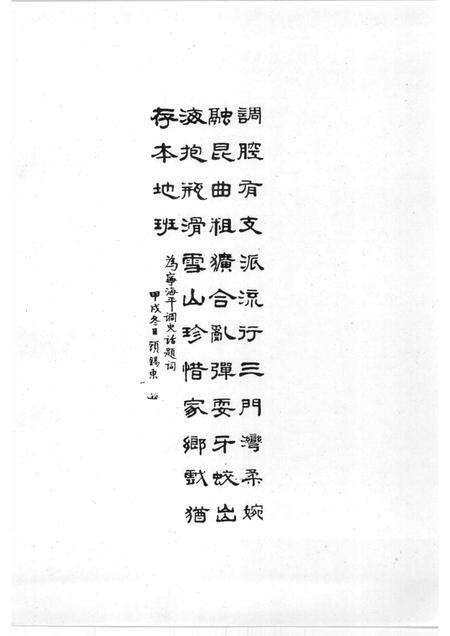 調腔有支派流行三門灣柔婉
融昆曲粗獷合亂彈耍牙蛟出
海抱瓶滑雪山珍惜家鄉戲猶
存本地班
為寧海平調史話題詞
甲戌冬日 顧錫東